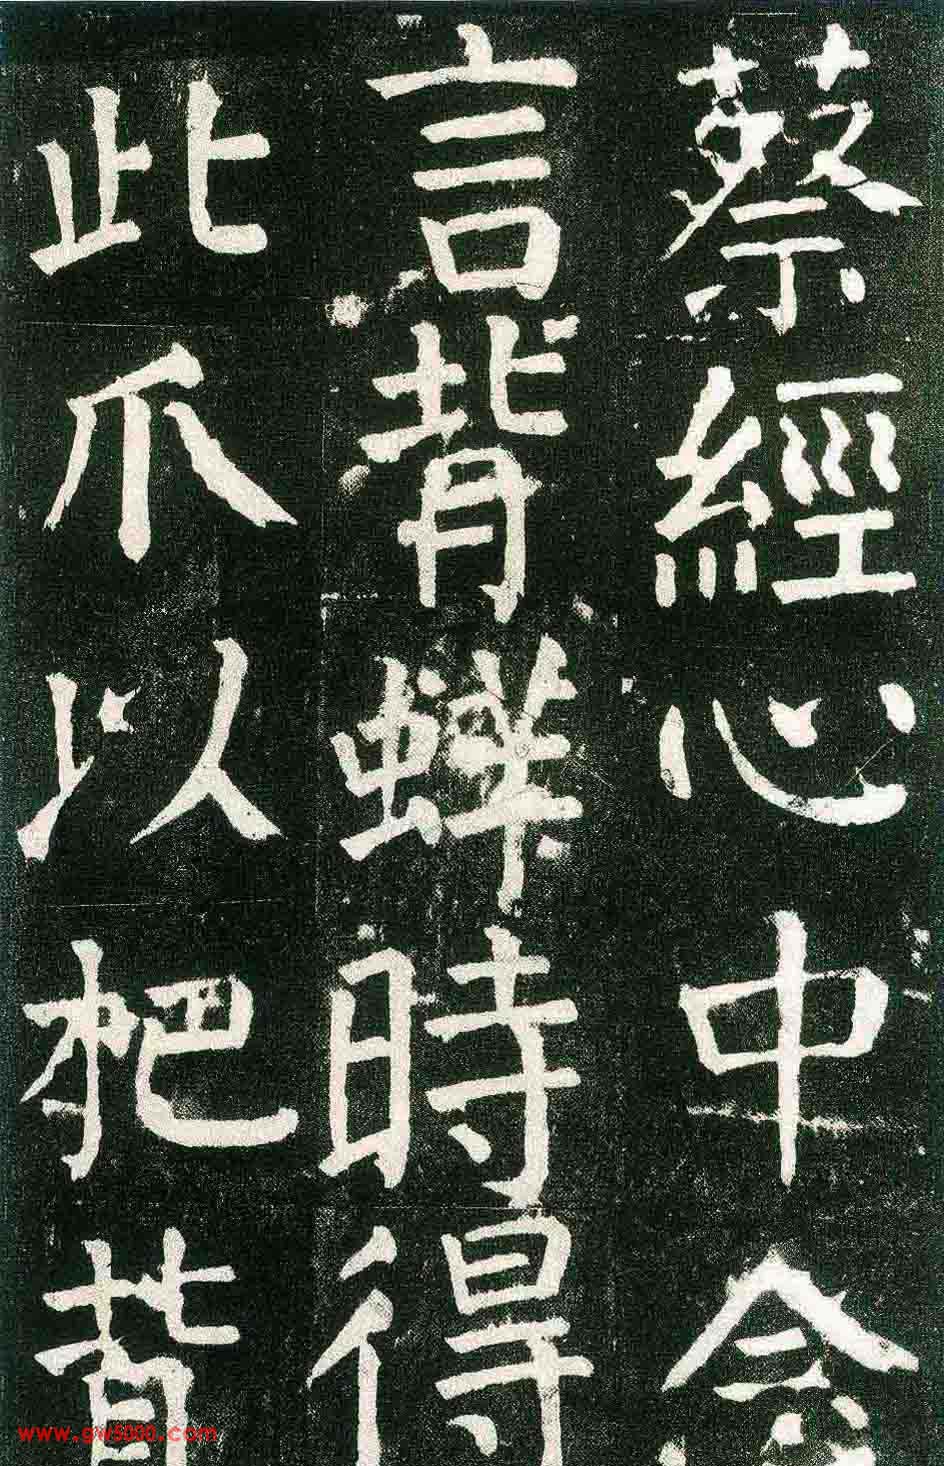 蔡經心中念
言背蛘時得
此爪以杷背
www.gw5000.com